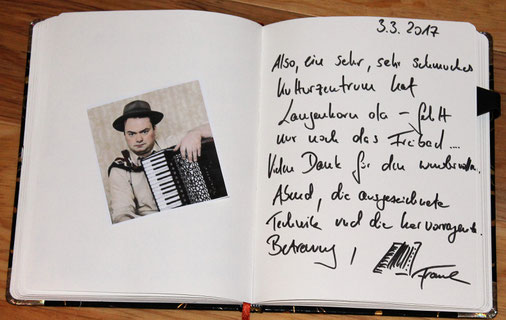 3.3.2017
Also, ein sehr, sehr schmuckes
Kulturzentrum hat
Langenhorn da – fehlt
nur noch das Freibad....
Vielen Dank für den wundervollen
Abend, die ausgezeichnete
Technik und die hervorragende
Betreuung!